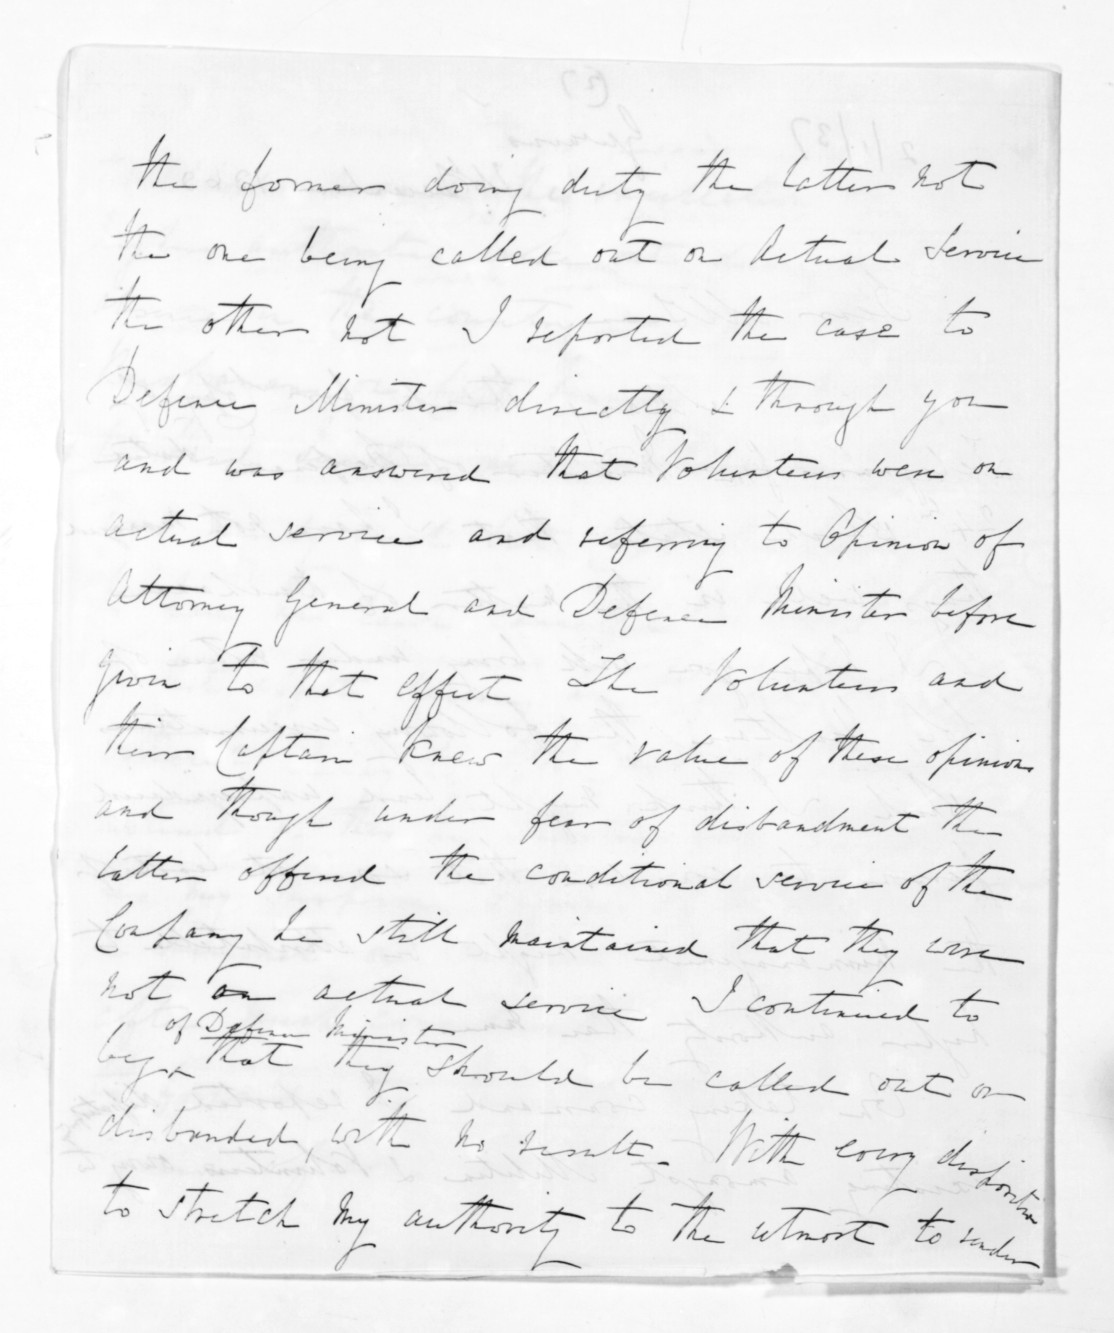 the former doing duty the latter not
the one being called out on Actual Service
the other not I reported the case to
Defence Minister directly & through you
and was answered that Volunteers were on
actual service and referring to Opinion of
Attorney General and Defence Minister before
given to that effect The Volunteers and
their Captain knew the value of these opinions
and though under fear of disbandment the
latter offered the conditional service of the
Company he still maintained that they were
not on actual service I continued to
of Defence Minister
beg that they should be called out or
disbanded, with no result. With every disposition
to stretch my authority to the utmost to render